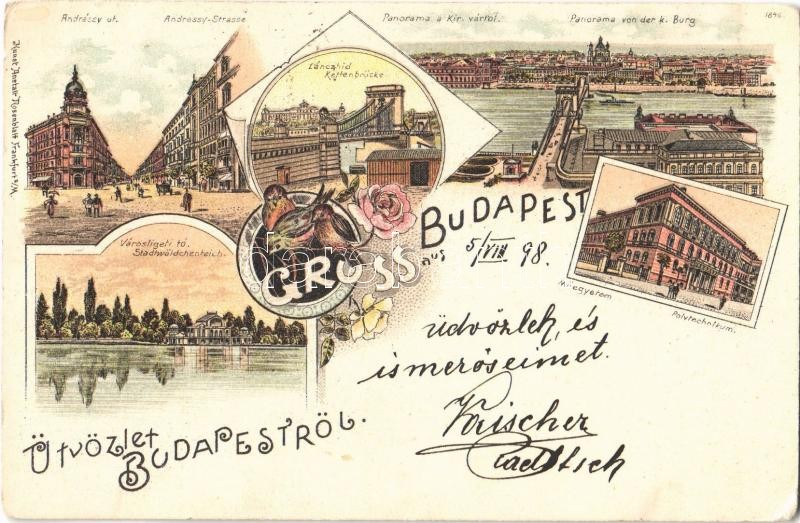 Andrássy út. Andrássy-Strasse
Lánczhíd
Kettenbrücke
Panorama a Kir. várról. Panorama von der k. Burg
1846
Kunst Anstalt Rosenblatt Frankfurt a/M.
Városligeti tó.
Stadtwäldchenteich.
GRUSS
aus BUDAPEST
5/VIII 98.
Műegyetem
Polytechnikum.
üdvözlek, és
ismerőseimet.
ÜdVözlet
BUDAPESTRŐL.